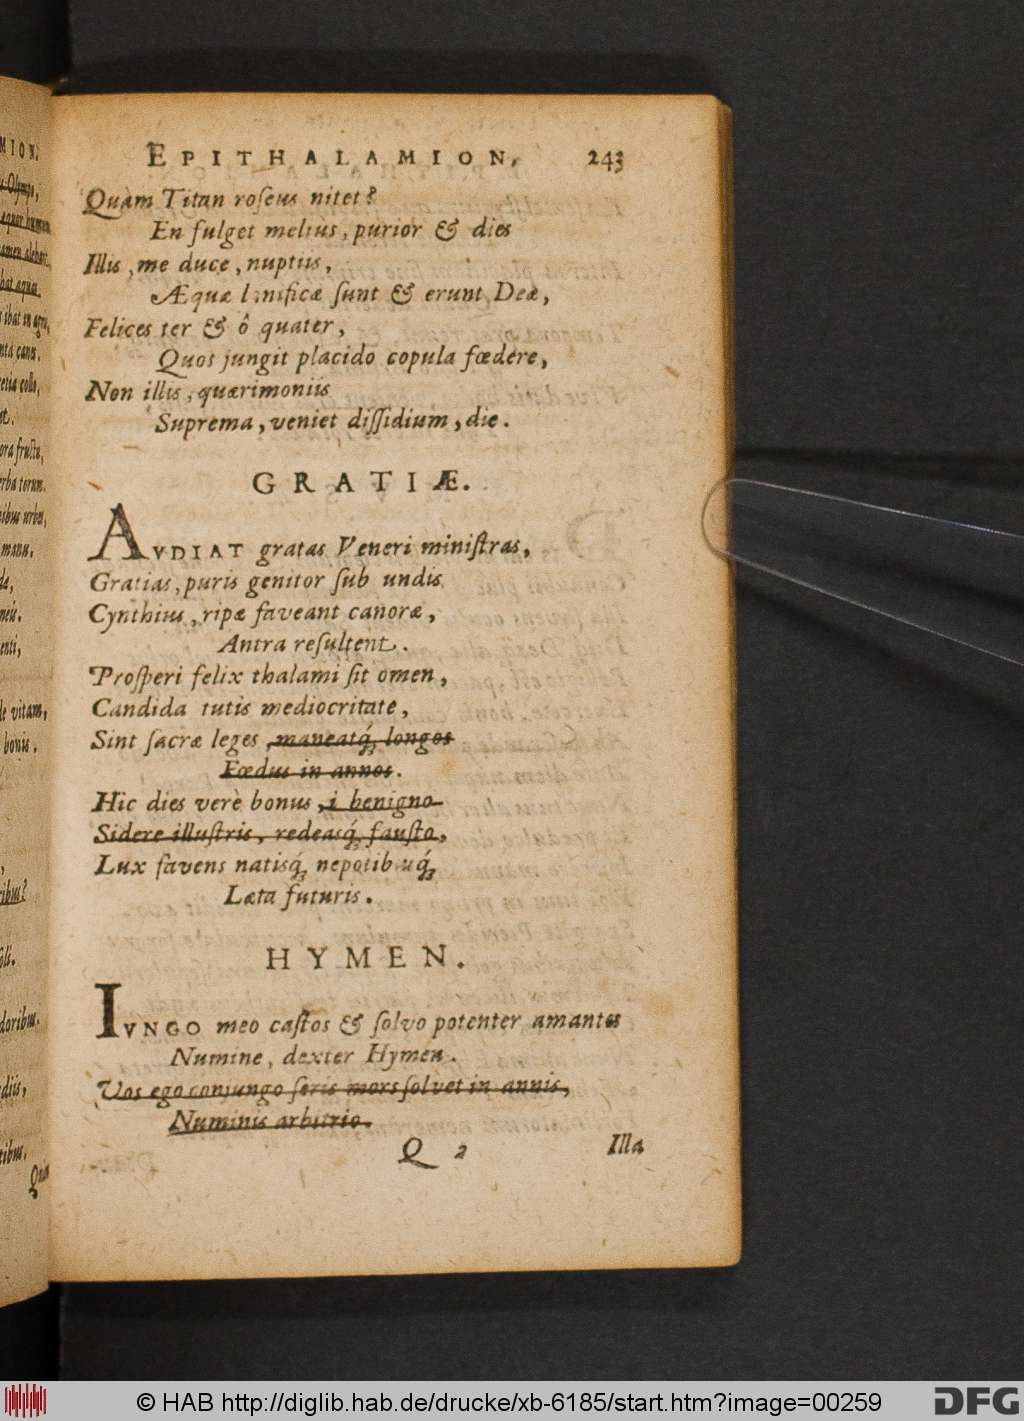 EPITHALAMION. 243
Quàm Titan roſeus nitet?
En fulget melius, purior & dies
Illis, me duce, nuptiis,
Æquæ lanificæ ſunt & erunt Deæ,
Felices ter & ô quater,
Quos jungit placido copula fœdere,
Non illis, quærimoniis
Suprema, veniet diſſidium, die.
GRATIÆ.
AVDIAT gratas Veneri miniſtras,
Gratias, puris genitor ſub undis
Cynthius, ripæ faveant canoræ,
Antra reſultent.
Proſperi felix thalami ſit omen,
Candida tutis mediocritate,
Sint ſacræ leges, maneatq́; longos
Fœdus in annos.
Hic dies verè bonus, i benigno
Sidere illuſtris, redeasq́; fauſto,
Lux favens natisq́; nepotibuuq́;
Læta futuris.
HYMEN.
IVNGO meo caſtos & ſolvo potenter amantes
Numine, dexter Hymen.
Vos ego conjungo ſeris mors ſolvet in annis,
Numinis arbitrio.
Q 2 Illa
MION.
Olympo,
nta canu.
ora fructu,
manu.
le vitam,
bonis.
© HAB http://diglib.hab.de/drucke/xb-6185/start.htm?image=00259
DFG